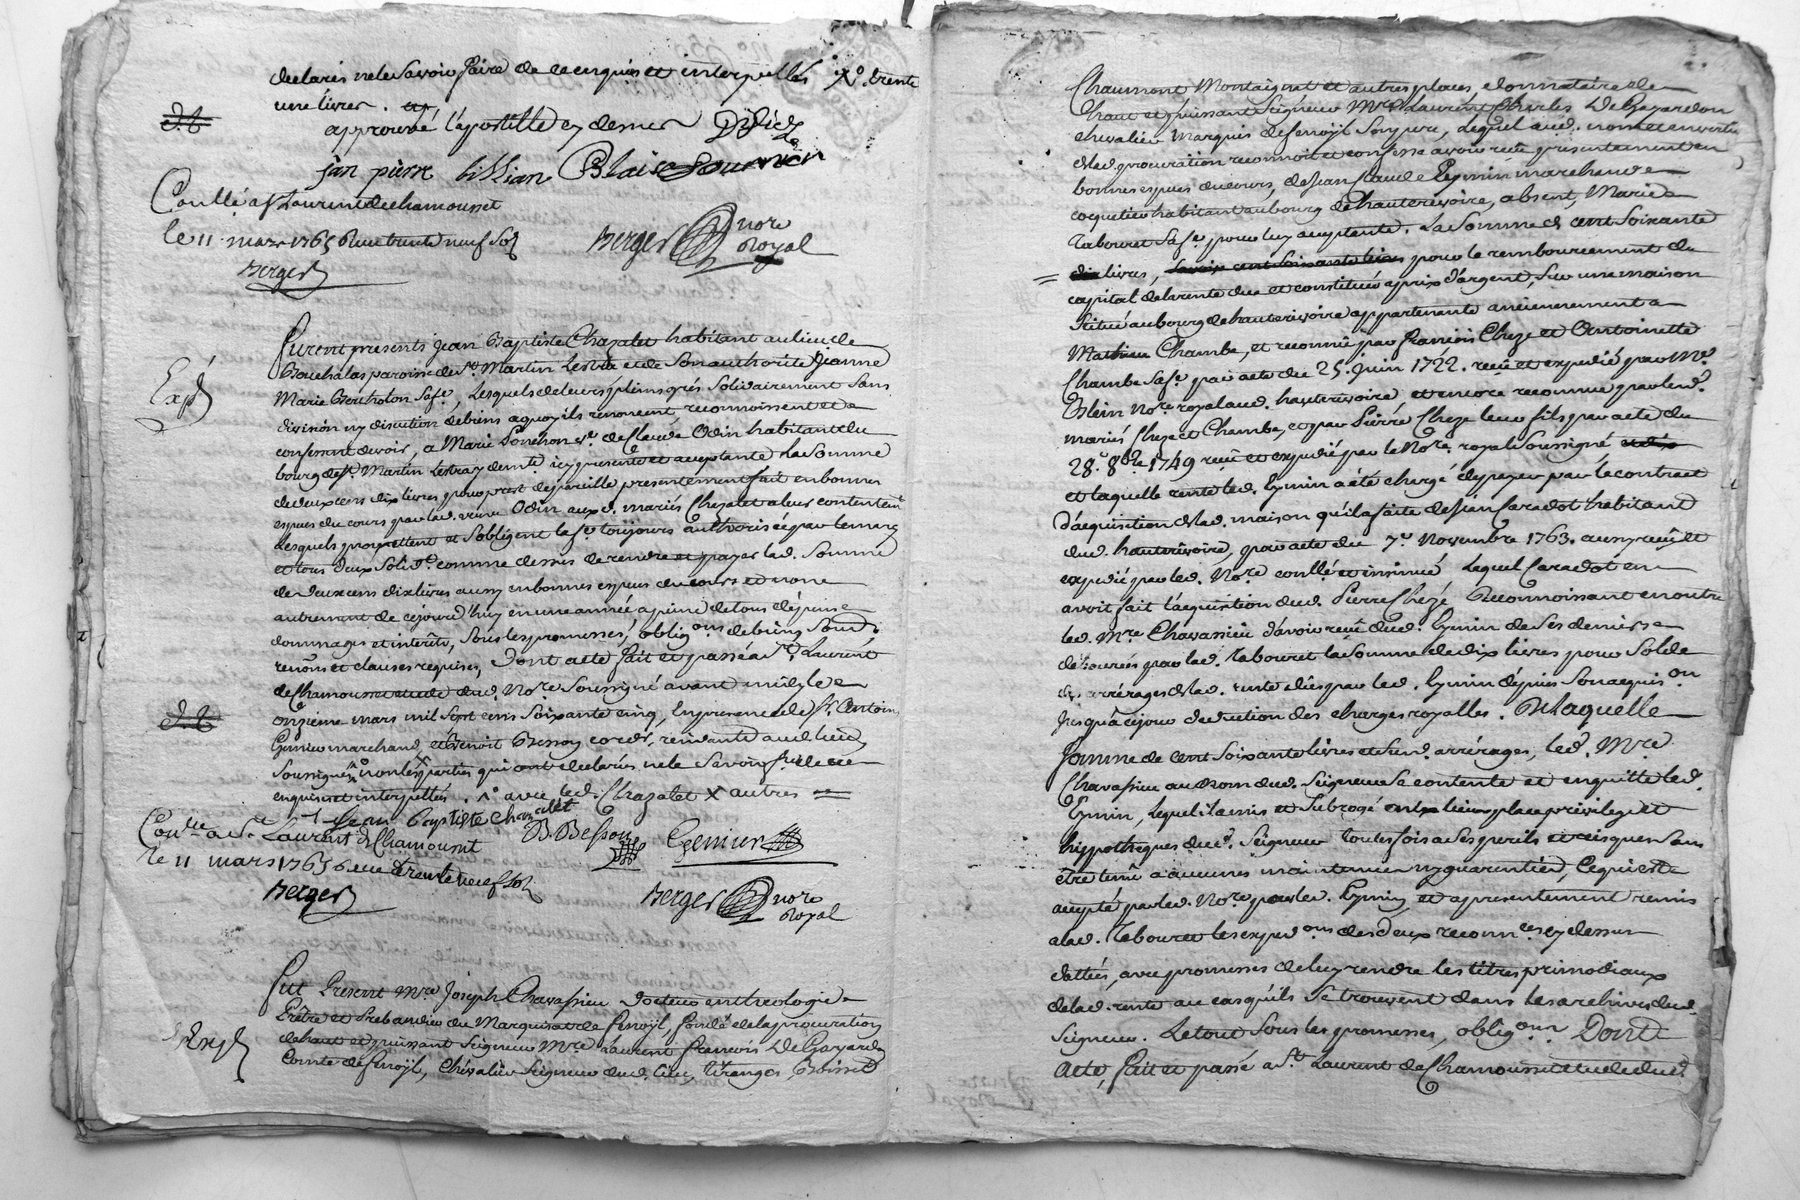 declarés ne le savoir faire de ce enquis et interpellés Xo. trente
une livres.
approuvé l'apostille cy dessus Didier
jan pierre billian Blaise
Conllé a St Laurent de chamousset
le 11 mars 1765 Reçu trente neuf sols
Berger
Berger nore
Royal
Furent presents Jean Baptiste Chazalet habitant au lieu de
Bouchalas paroisse de St. Martin Lestra et de son authorité Jeanne
Exp.
Marie Bertholon sa fe., Lesquels de leurs pleins grés solidairement sans
division ny discution de biens a quoy ils renoncent, reconnoissent et
confessent devoir, a Marie Ponchon ve. de Claude Odin habitante du
bourg de St. Martin Lestra y demte. icy presente et acceptante La Somme
de deux cens dix livres pour prest de pareille presentement fait en bonnes
espèces du cours par lad. veuve Odin auxd. mariés Chazalet a leur contentemt
Lesquels promettent et s'obligent lad. fe. toujours authorisée par le mary
et tous deux solidt. comme dessus de rendre et payer lad. Somme
de deux cens dix livres aussy en bonnes espèces du cours et non
autrement de ce jourd'huy en une année a peine de tous dépens
dommages et interêts, sous les promesses, obligons de biens
renons et clauses requises, Dont acte fait et passé a St. Laurent
de Chamousset etude dud. Nore. Soussigné avant midy le
onzième mars mil sept cens soixante cinq, En presence de Sr. Antoine
marchand, et Benoit Besson residants aud. lieu
soussignés non les parties qui ont declarés ne le savoir faire de ce
enquis et interpellés. Xo avec led. Chazalet X autres
Jean Baptiste Chazalet
Conlle a St Laurent de Chamousset
B. Besson
le 11 mars 1765 Recu trente neuf sols
Berger
Berger nore
Royal
Fut Present Mre Joseph Chavassieu docteur en theologie
Prêtre et Prebandier du Marquisat de Fenoÿl, fondé de la procuration
Exp.
de haut et puissant Seigneur Mre Laurent François De Gayardon
Comte de Fenoÿl, Chévalier Seigneur dud. lieu, Tiranges, Boisset
Chaumont Montaignat et autres places, donnataire de
Haut et puissant Seigneur Mre Laurent Charles De Gayardon
chevalier Marquis de Fenoÿl Son pere, Lequel aud. nom et en vertu
de lad. procuration reconnoit et confesse avoir reçu presentement en
bonnes espèces du cours, de Jean Claude Eymin marchand
coquetier habitant au bourg de hauterivoire, absent, Marie
Tabouret Sa fe. pour luy acceptante. La Somme de cent soixante
livres, pour le remboursement du
capital de la rente due et constituée a prix d'argent, sur une maison
située au bourg de hauterivoire appartenante anciennement a
Mathieu Chambe, et reconnue par François Cheze et Antoinette
Chambe Sa fe. par acte du 25. Juin 1722. reçu et expedié par Me.
Blein Nore royal aud. hauterivoire et encore reconnue par led.
mariés Cheze et Chambe, et par Pierre Cheze leur fils par acte du
28e. 8bre 1749 reçu et expedié par le Nore. royal Soussigné
et laquelle rente led. Eymin a été chargé de payer par le contract
d'acquisition de lad. maison qu'il a faite de Jean Caradot habitant
dud. hauterivoire, par acte du 7e. Novembre 1763. aussy reçu et
expedié par led. Nore. conllé et insinué Lequel Caradot en
avoit fait l'acquisition dud. Pierre Chezé Reconnoissant en outre
led. Mre Chavassieu d'avoir reçu dud. Eymin de ses deniers
par lad. Tabouret la somme de dix livres pour solde
des arrérages de lad. rente dues par led. Eymin depuis son acquison
jusqu'a ce jour deduction des charges royalles. De laquelle
Somme de cent soixante livres et sus d. arrérages, led. Mre
Chavassieu au nom dud. Seigneur se contente et en quitte led.
Eymin, Lequel il a mis et subrogé en lieu place privilege et
hippothéques dud. Seigneur toutes fois a ses perils et risques sans
être tenu a aucunes maintenue ny guarentie, Ce qui est
accepté par led. Nore pour led. Eymin, et a presentement remis
a lad. Tabouret les expedons des deux reconnces cy dessus
dattées, avec promesses de luy rendre les titres primodiaux
de lad. rente au cas qu'ils se trouvent dans les archives dud.
Seigneur. Le tout sous les promesses, obligons. Dont
Acte, fait et passé a St. Laurent de Chamousset etude dud.